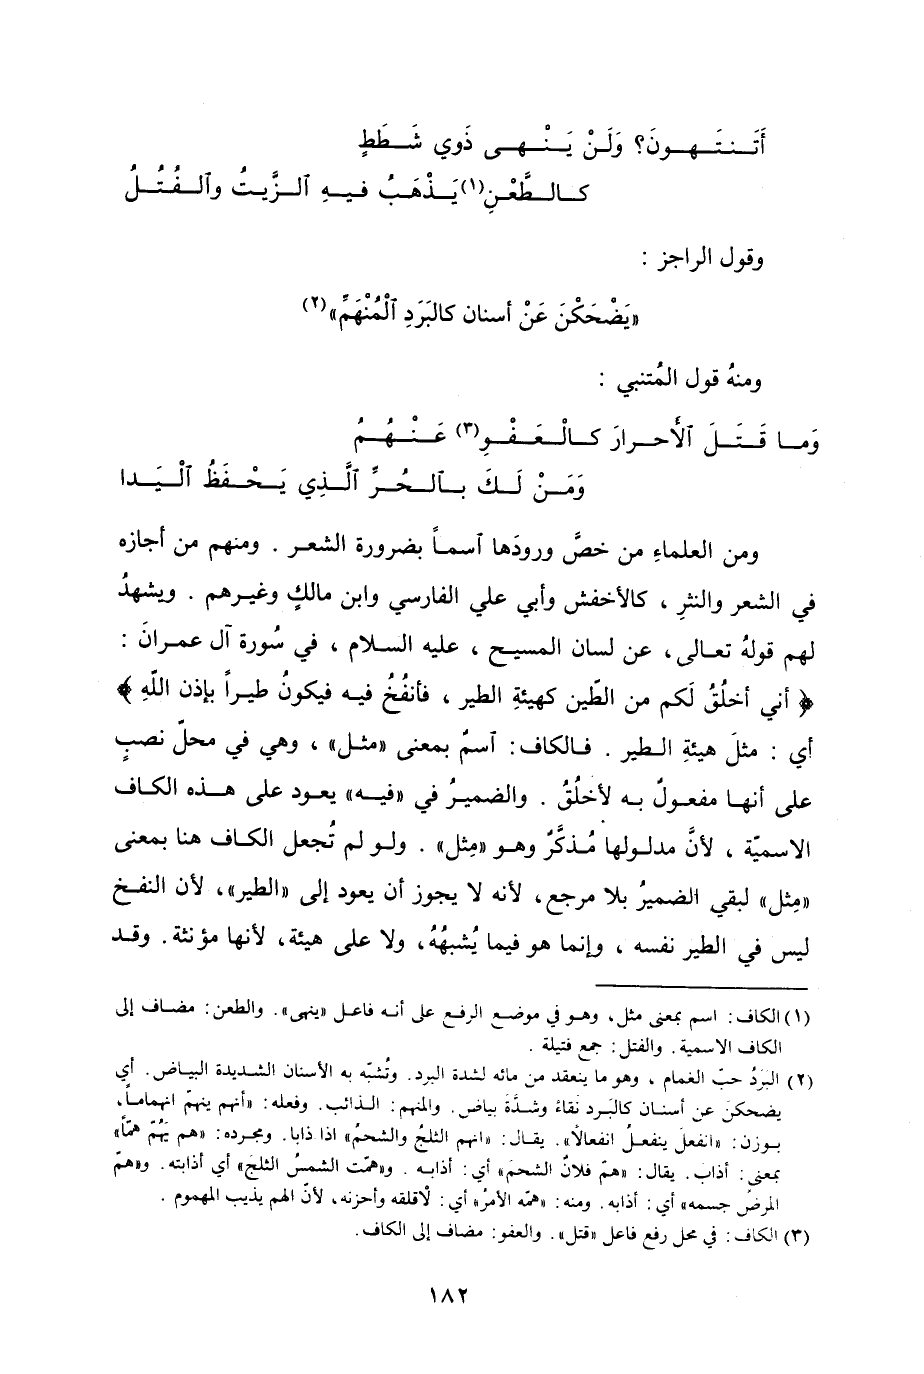 أَتَنتَهونَ؟ وَلَنْ يَنْهى ذَوي شَطَطٍ
كالطَّعْنِ(١) يَذْهَبُ فيهِ ٱلزَّيتُ وٱلفُتُلُ
وقول الراجز :
«يَضْحَكْنَ عَنْ أسنان كالبَرَدِ ٱلْمُنْهَمِّ»(٢)
ومنهُ قول المُتنبي :
وَما قَتَلَ ٱلأَحرارَ كالْعَفْوِ(٣) عَنْهُمُ
وَمَنْ لَكَ بٱلحُرِّ ٱلَّذِي يَحْفَظُ ٱلْيَدا
ومن العلماءِ من خصَّ ورودَها ٱسماً بضرورة الشعر . ومنهم من أجازه
في الشعر والنثرِ ، كالأخفش وأبي علي الفارسي وابن مالكٍ وغيرهم . ويشهدُ
لهم قولهُ تعالى، عن لسان المسيح ، عليه السلام ، في سُورة آل عمرانَ :
﴿ أني أخلُقُ لَكم من الطّين كهيئةِ الطير ، فأنفُخُ فيه فيكونُ طيراً بإذن اللّهِ ﴾
أي : مثلَ هيئةِ الطير . فالكاف: ٱسمٌ بمعنى «مثل» ، وهي في محلّ نصبٍ
على أنها مفعولٌ به لأخلُقُ . والضميرُ في «فيه» يعود على هذه الكاف
الاسميّة ، لأنَّ مدلولها مُذكَّرٌ وهو «مِثل» . ولو لم تُجعل الكاف هنا بمعنى
«مِثل» لبقي الضميرُ بلا مرجع، لأنه لا يجوز أن يعود إلى «الطير»، لأن النفخ
ليس في الطير نفسه ، وإنما هو فيما يُشبهُهُ، ولا على هيئة، لأنها مؤنثة. وقد
(١) الكاف: اسم بمعنى مثل، وهو في موضع الرفع على أنه فاعل «ينهى». والطعن: مضاف إلى
الكاف الاسمية. والفتل: جمع فتيلة .
(٢) البَرَدُ حبّ الغمام ، وهو ما ينعقد من مائه لشدة البرد. وتُشبّه به الأسنان الشديدة البياض. أي
يضحكن عن أسنان كالبَرد نقاءً وشدَّة بياض. والمنهم: الذائب. وفعله: «أنهم ينهمّ انهماماً،
بوزن: «انفعلَ ينفعلُ انفعالاً». يقال: «انهم الثلجُ والشحمُ» اذا ذابا. ومجرده: «هم يَهُمّ همّاً»
بمعنى: أذاب. يقال: «همّ فلانٌ الشحمَ» أي: أذابه . و«همّت الشمسُ الثلجَ» أي أذابته. و«همّ
المرضُ جسمه» أي: أذابه. ومنه: «همّه الأمرُ» أي: لأقلقه وأحزنه، لأنّ الهم يذيب المهموم .
(٣) الكاف: في محل رفع فاعل «قتل». والعفو: مضاف إلى الكاف.
١٨٢